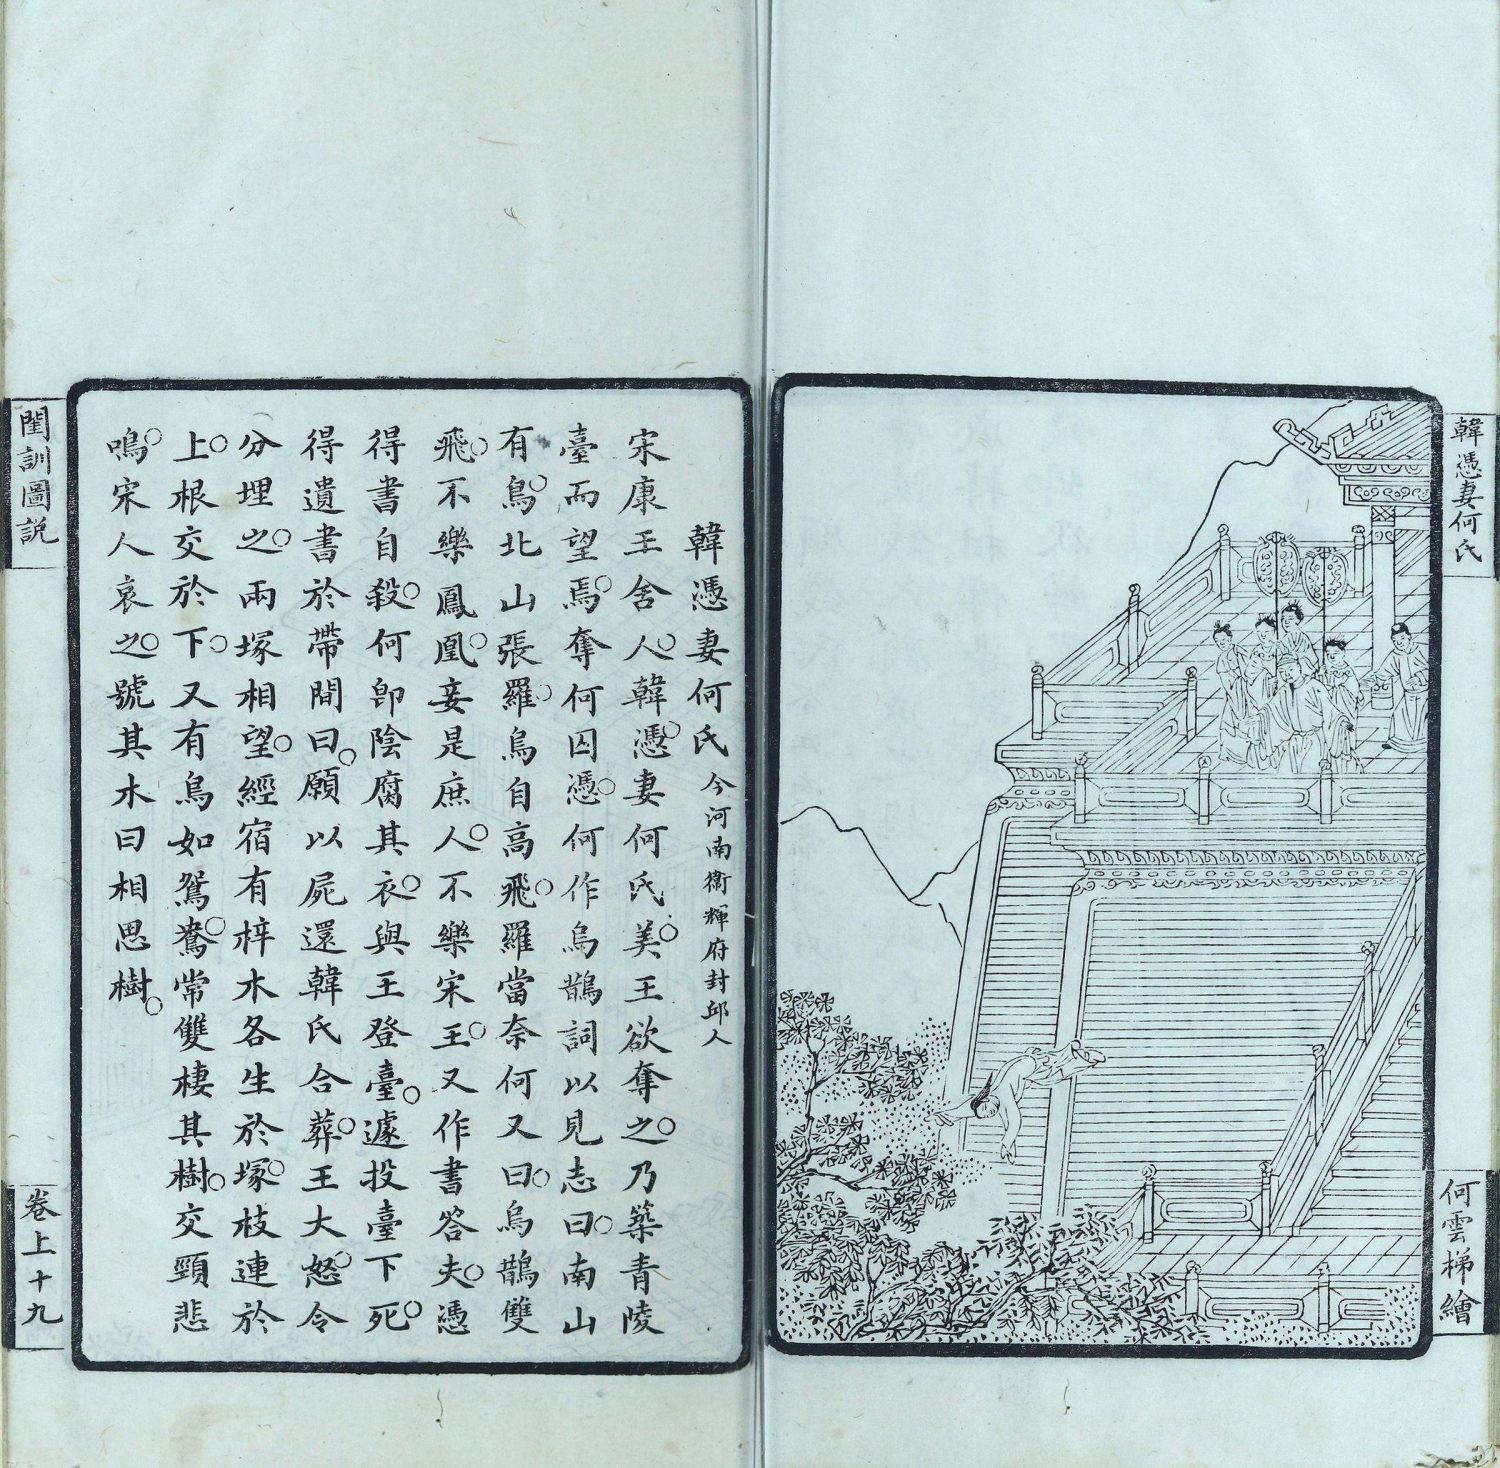 韓憑妻何氏
何雲梯繪
韓憑妻何氏 今河南衛輝府封邱人
宋康王舍人韓憑妻何氏美王欲奪之乃築青陵
臺而望焉奪何囚憑何作烏鵲詞以見志曰南山
有烏北山張羅烏自高飛羅當奈何又曰烏鵲雙
飛不樂鳳凰妾是庶人不樂宋王又作書答夫憑
得書自殺何卽陰腐其衣與王登臺遽投臺下死
得遺書於帶間曰願以屍還韓氏合葬王大怒令
分埋之兩塚相望經宿有梓木各生於塚枝連於
上根交於下又有鳥如鴛鴦常雙棲其樹交頸悲
鳴宋人哀之號其木曰相思樹
閨訓圖説
卷上十九